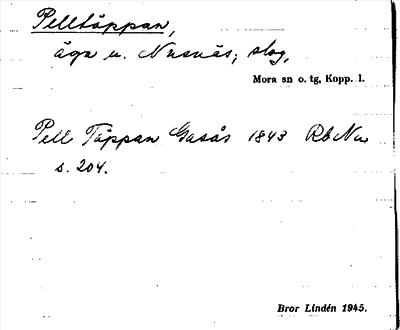 Pelltäppan,
äga u. Nusnäs; skog,
Mora sn o. tg, Kopp. l.
Pell Täppan Gasås 1843 Rb Nus
s. 204.
Bror Lindén 1945.